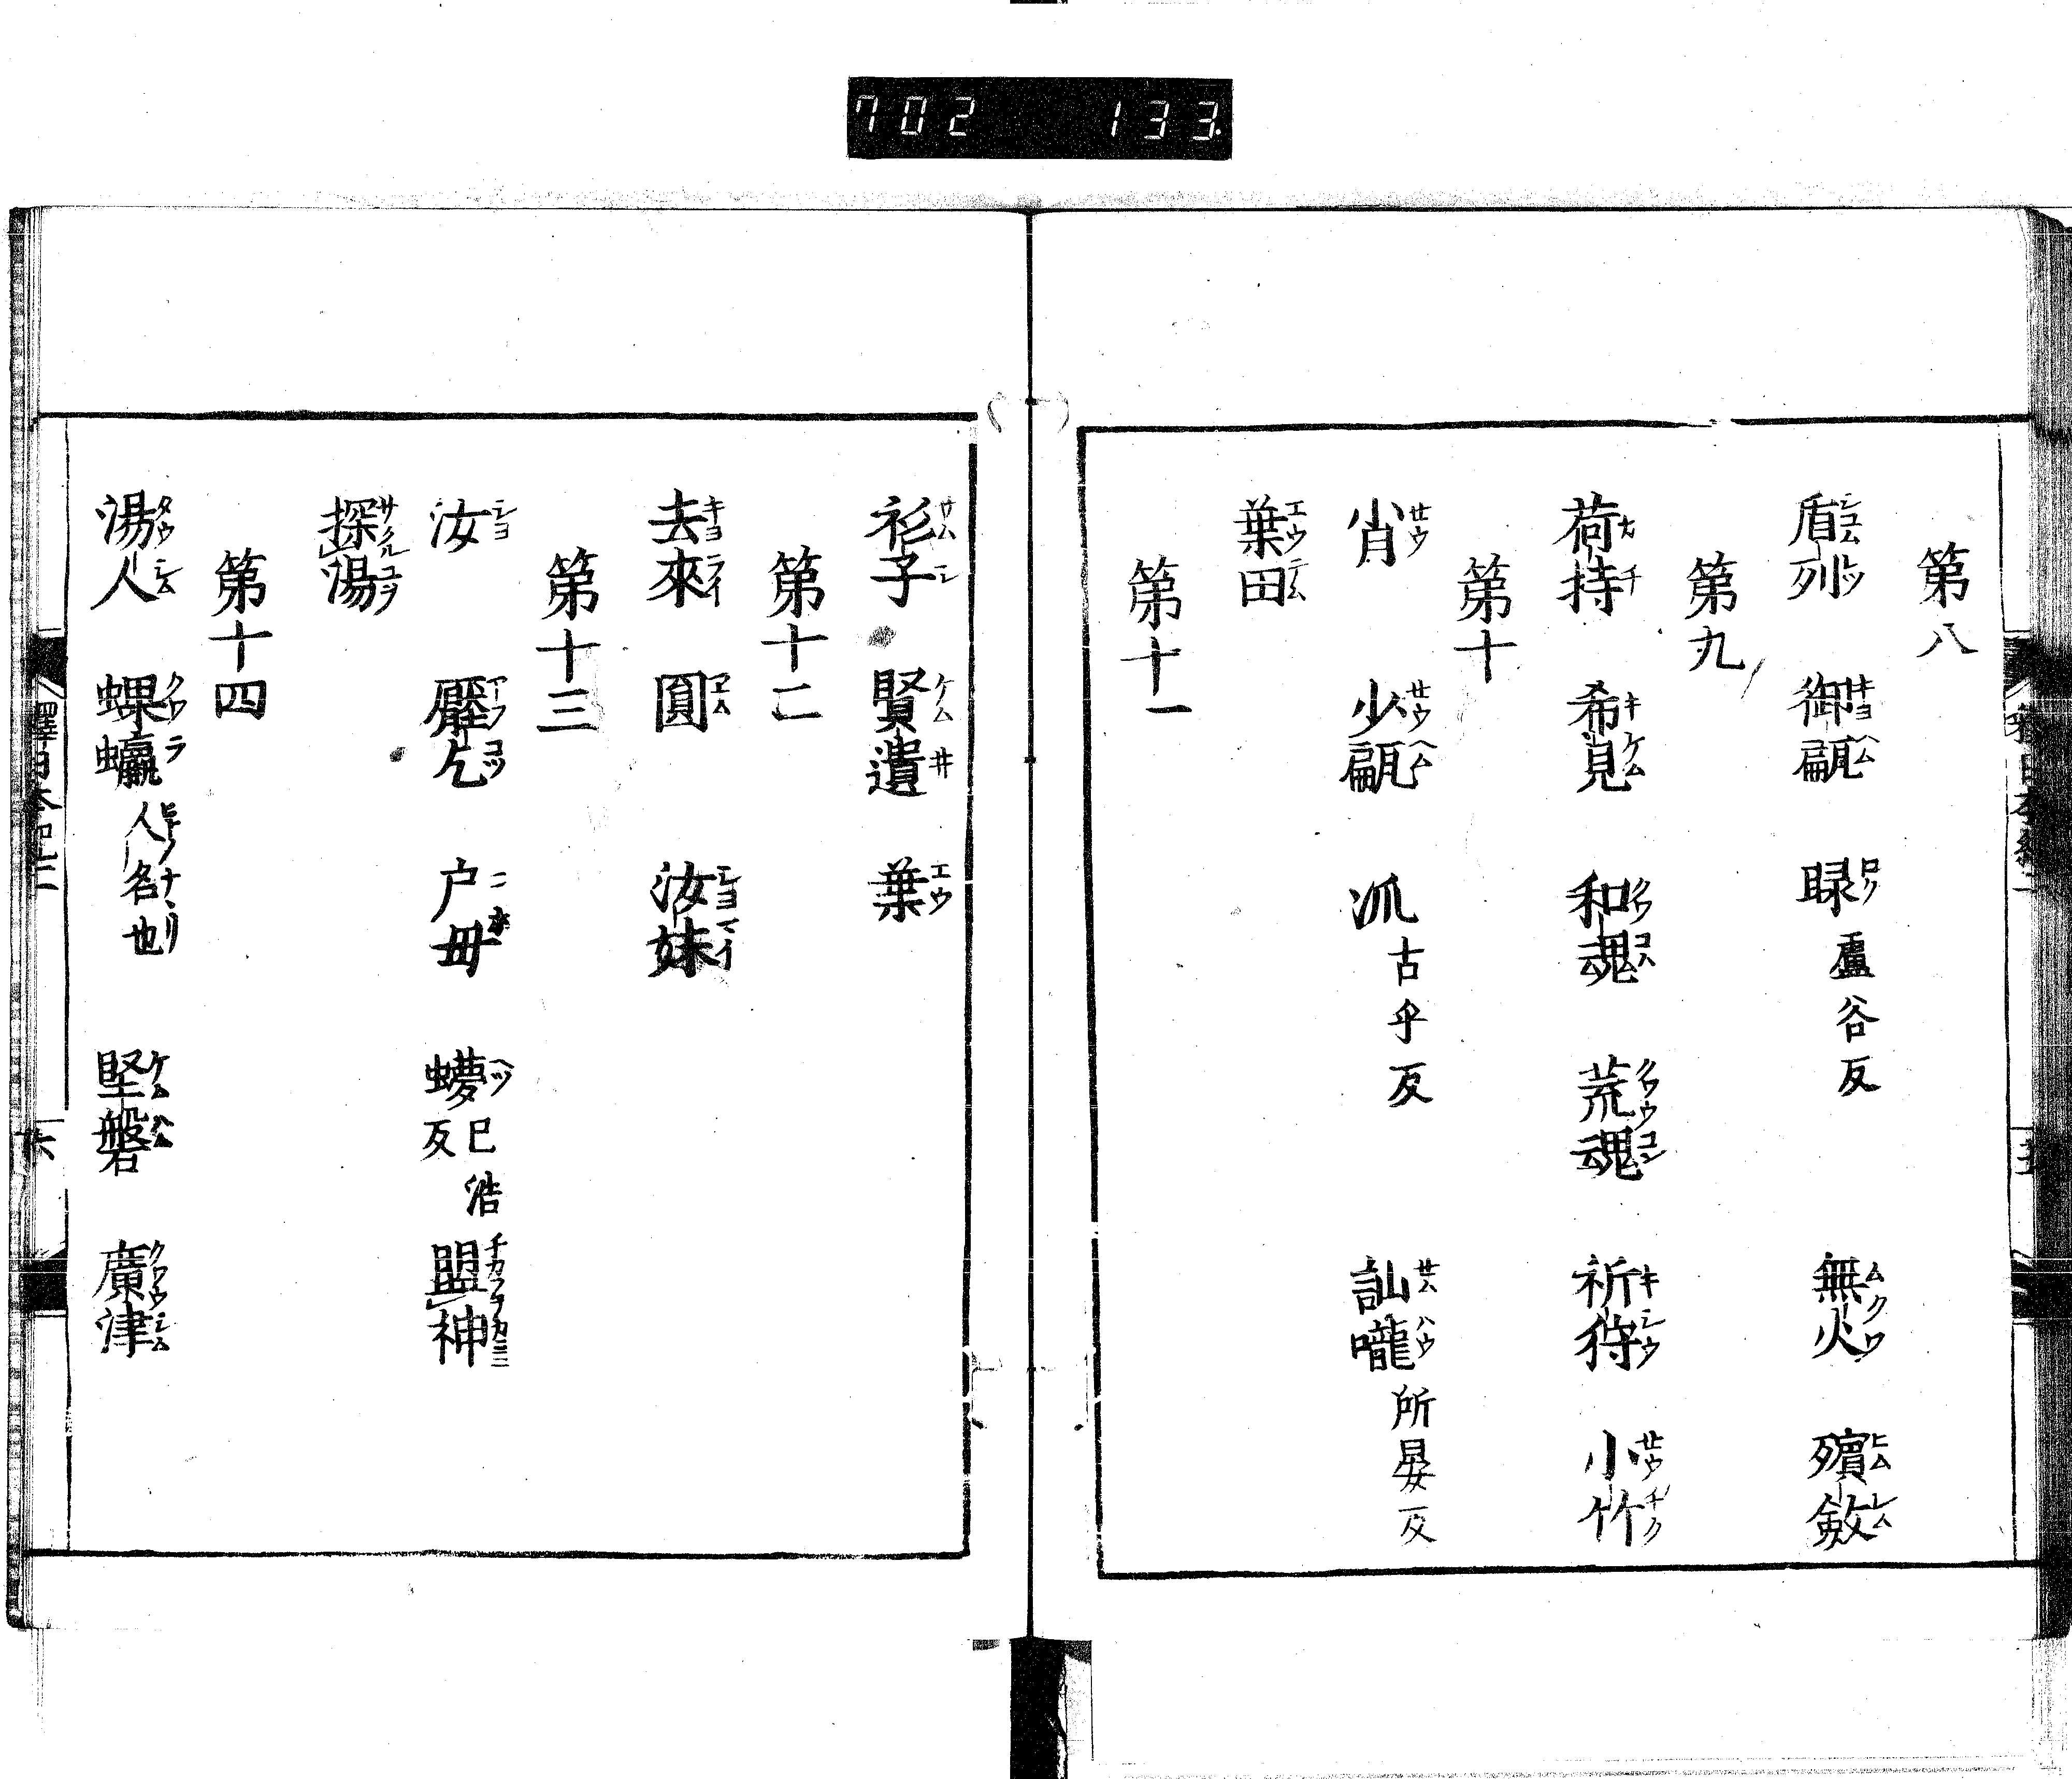 702 133
第八
盾列 御甂 睩 盧谷反 無火 殯斂
第九
荷持 希見 和魂 荒魂 祈狩 小竹
第十
肖 少甂 泒 古乎反 訕嚨 所晏反
葉田
第十一
衫子 賢遺 葉
第十二
去來 圓 汝妹
第十三
汝 壓乞 戸母 蠛 巳浩反 盟神
探湯
第十四
湯人 蜾蠃 人名也 堅磐 廣津